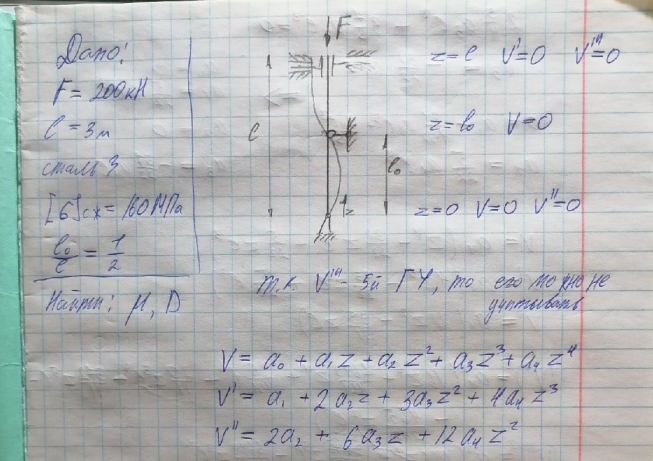 Дано:
F = 200кН
l = 3м
сталь 3
[б]сж = 160МПа
l₀/l = 1/2
Найти: μ, D
F
l
l₀
z
z = l V' = 0 V''' = 0
z = l₀ V = 0
z = 0 V = 0 V'' = 0
т.к. V''' - 5й ГУ, то его можно не
учитывать
V = a₀ + a₁z + a₂z² + a₃z³ + a₄z⁴
V' = a₁ + 2a₂z + 3a₃z² + 4a₄z³
V'' = 2a₂ + 6a₃z + 12a₄z²